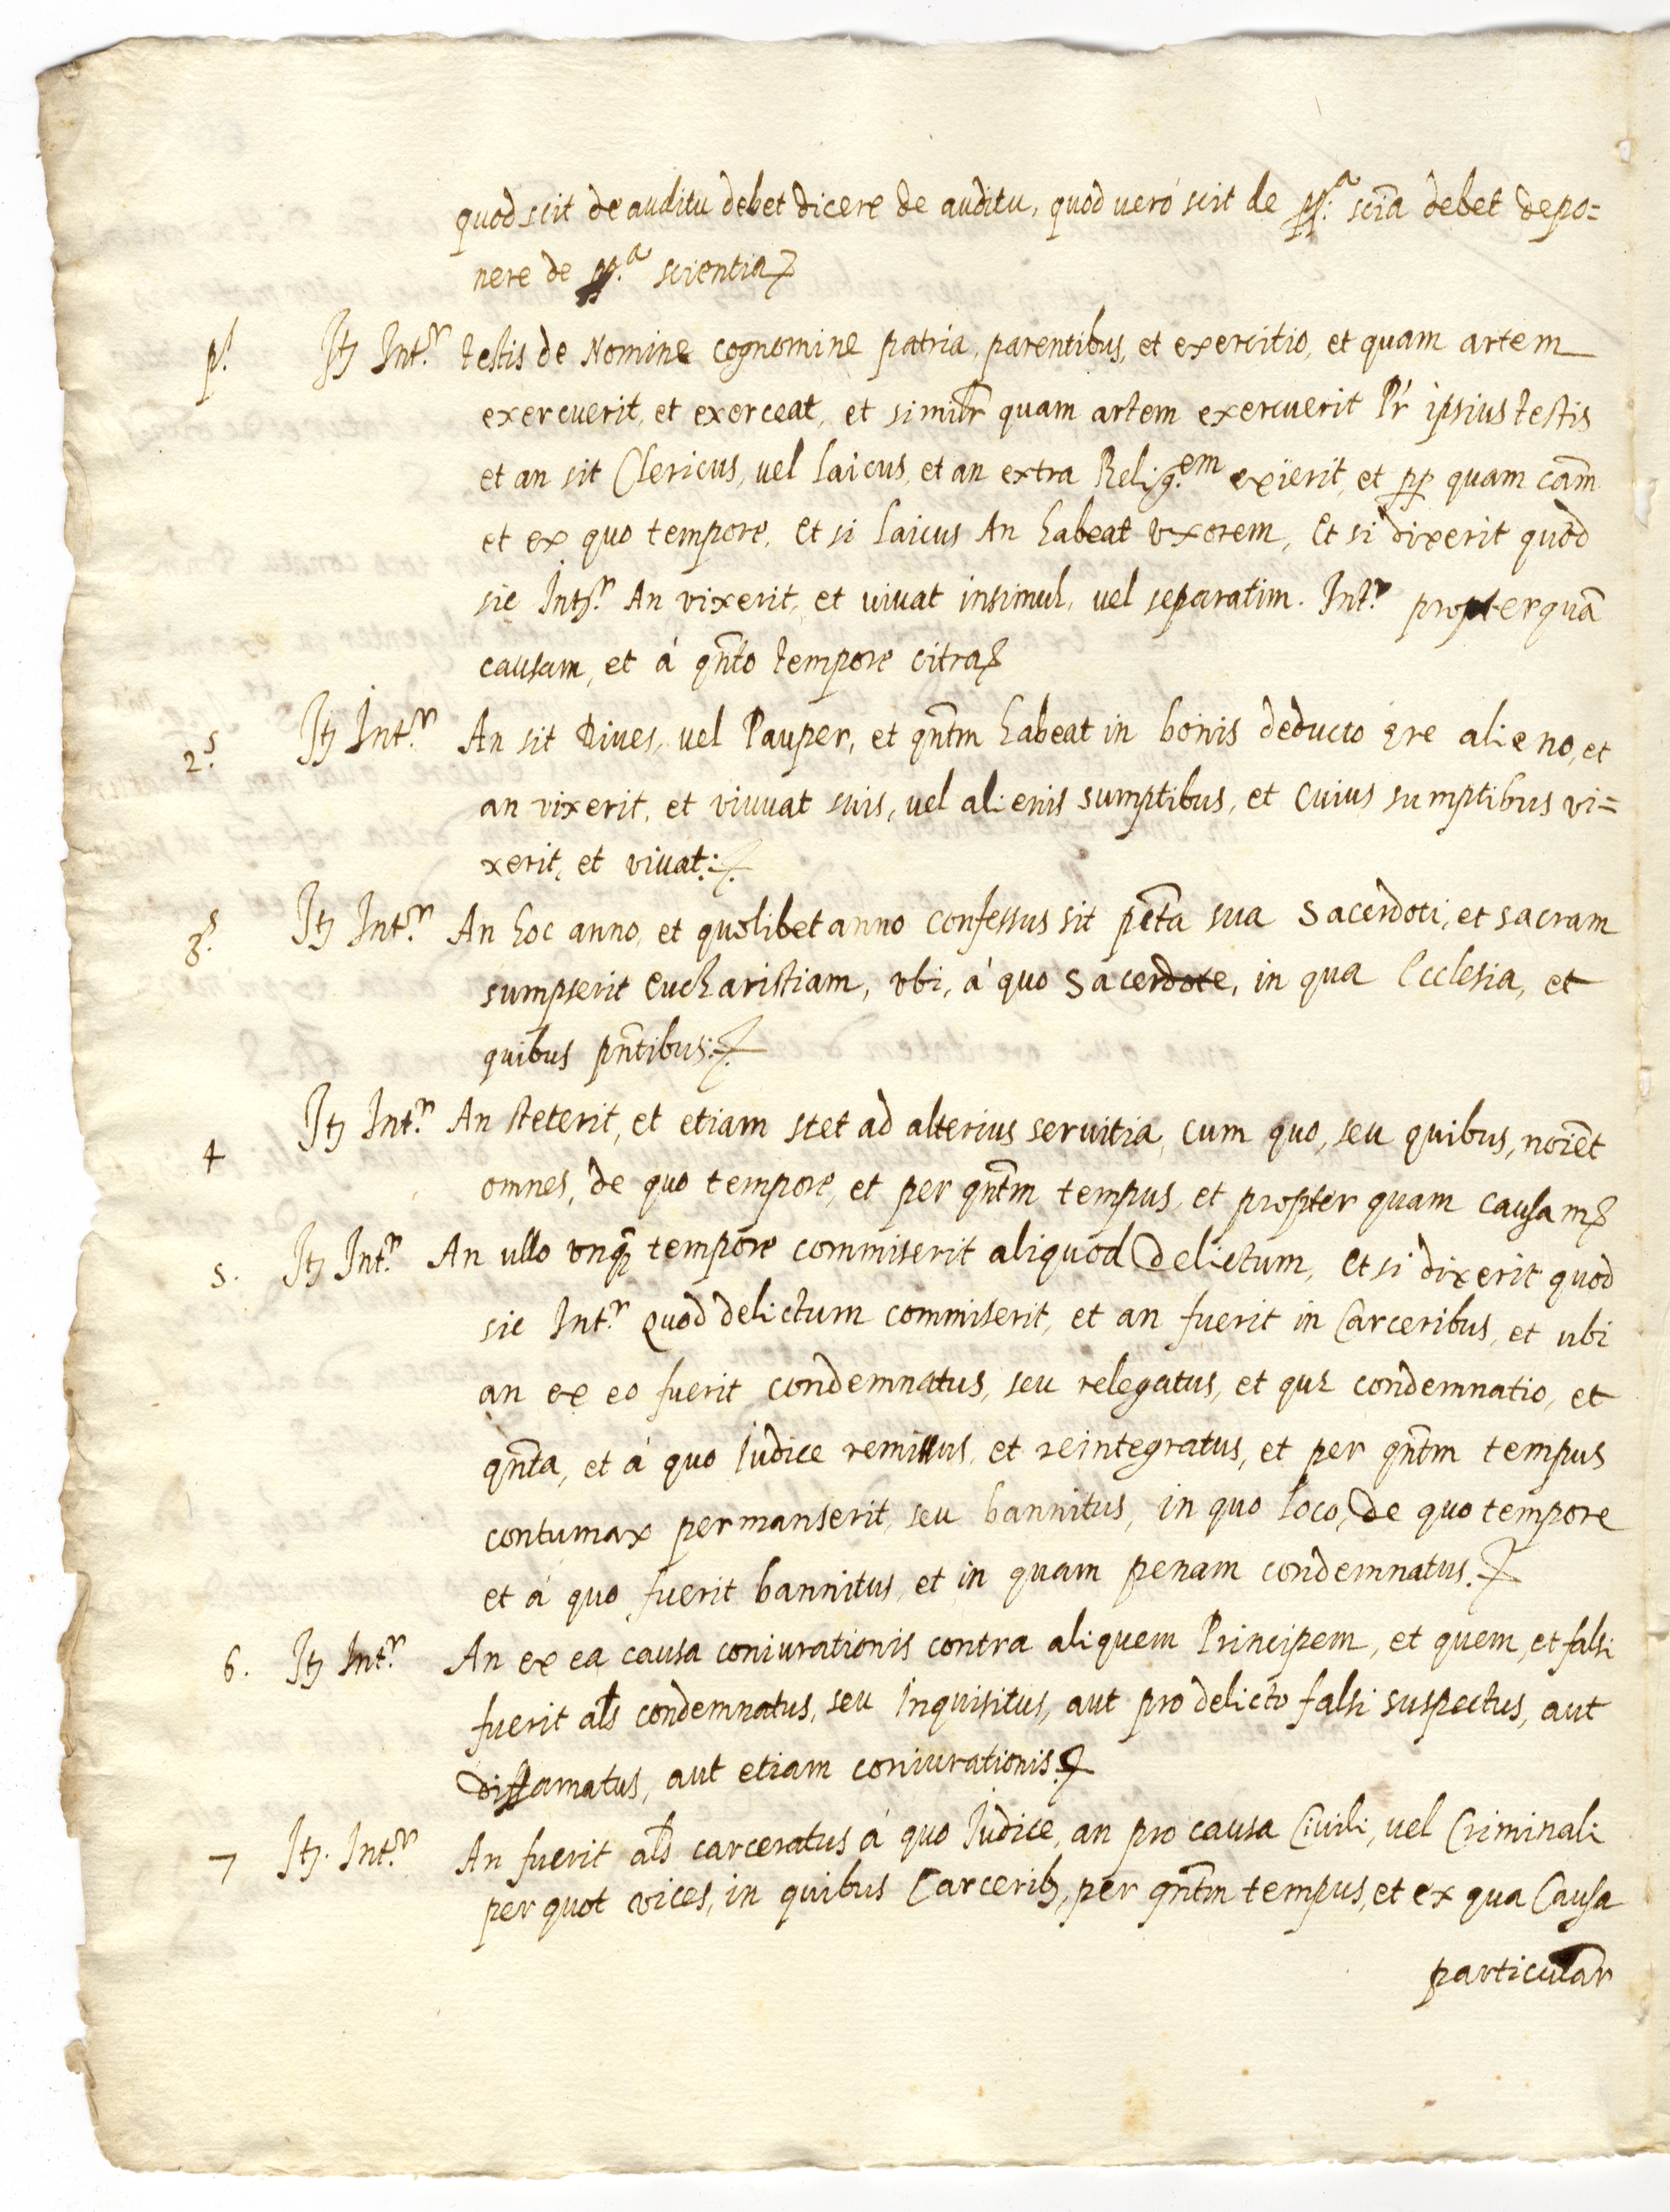 quod scit de auditu debet dicere de auditu, quod uerò scit de pp:ᵃ sciã debet depo=
nere de pp.ᵃ scientia
p.ˢ Itȝ Int.ʳ testis de Nomine cognomine patria, parentibus, et exercitio, et quam artem
exercuerit, et exerceat, et simĩlr quam artem exercuerit Pr̃ ipsius testis
et an sit Clericus, vel laicus, et an extra Relig.ᵉᵐ exierit, et pp quam cãm
et ex quo tempore, et si laicus An habeat vxorem, Et si dixerit quod
sic Int.ʳ An vixerit, et uiuat insimul, uel separatim. Int.ʳ propter quã
causam, et à qñto tempore citra
2.ˢ Itȝ Int.ʳ An sit Diues, uel Pauper, et qñtm habeat in bonis deducto ęre alieno, et
an vixerit, et viuuat suis, vel alienis sumptibus, et cuius sumptibus vi=
xerit, et viuat:
3.ˢ Itȝ Int.ʳ An hoc anno, et quolibet anno confessus sit pctã sua Sacerdoti, et sacram
sumpserit eucharistiam, vbi, à quo Sacerdote, in qua Ecclesia, et
quibus pñtibus:
4 Itȝ Int.ʳ An steterit, et etiam stet ad alterius seruitia, cum quo, seu quibus, noiẽt
omnes, de quo tempore, et per qñtm tempus, et propter quam causam
5. Itȝ Int.ʳ An ullo vnq̃ tempore commiserit aliquod delictum, Et si dixerit quod
sic Int.ʳ Quod delictum commiserit, et an fuerit in Carceribus, et ubi
an ex eo fuerit condemnatus, seu relegatus, et quę condemnatio, et
qñta, et à quo Iudice remissus, et reintegratus, et per qñtm tempus
contumax permanserit, seu bannitus, in quo loco, de quo tempore
et à quo fuerit bannitus, et in quam penam condemnatus.
6. Itȝ Int.ʳ An ex ea causa coniurationis contra aliquem Principem, et quem, et falsi
fuerit als̃ condemnatus, seu Inquisitus, aut pro delicto falsi suspectus, aut
diffamatus, aut etiam coniurationis
7 Itȝ. Int.ʳ An fuerit als̃ carceratus à quo Iudice, an pro causa Ciuili, uel Criminali
per quot vices, in quibus Carceribȝ, per qñtm tempus, et ex qua Causa
particular̃